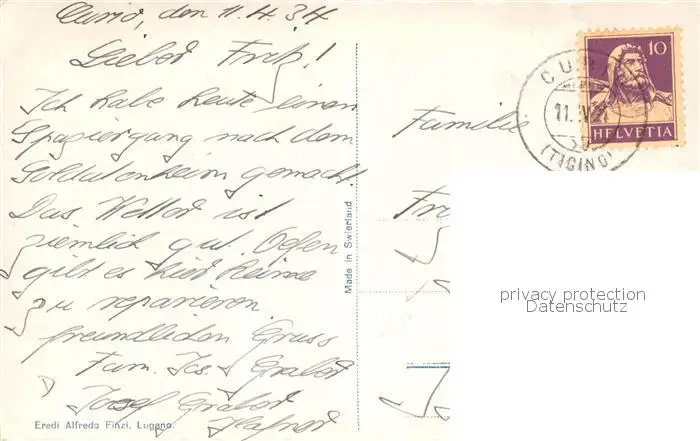 Curio, den 11.4.34
Lieber Fritz!
Ich habe heute einen
Spaziergang nach dem
Soldatenheim gemacht.
Das Wetter ist
ziemlich gut. Oefen
gibt es hier keine
zu reparieren.
freundlichen Gruss
Fam. Jos. Graber
Josef Graber
Hafner
Eredi Alfredo Finzi, Lugano.
Made in Swierland.
10
HELVETIA
CURIO
11.IV.34
(TICINO)
Familie
Fr
privacy protection
Datenschutz